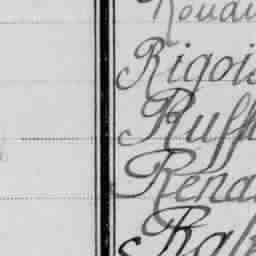 Rouau
Rigois
Ruff
Rena
Rab